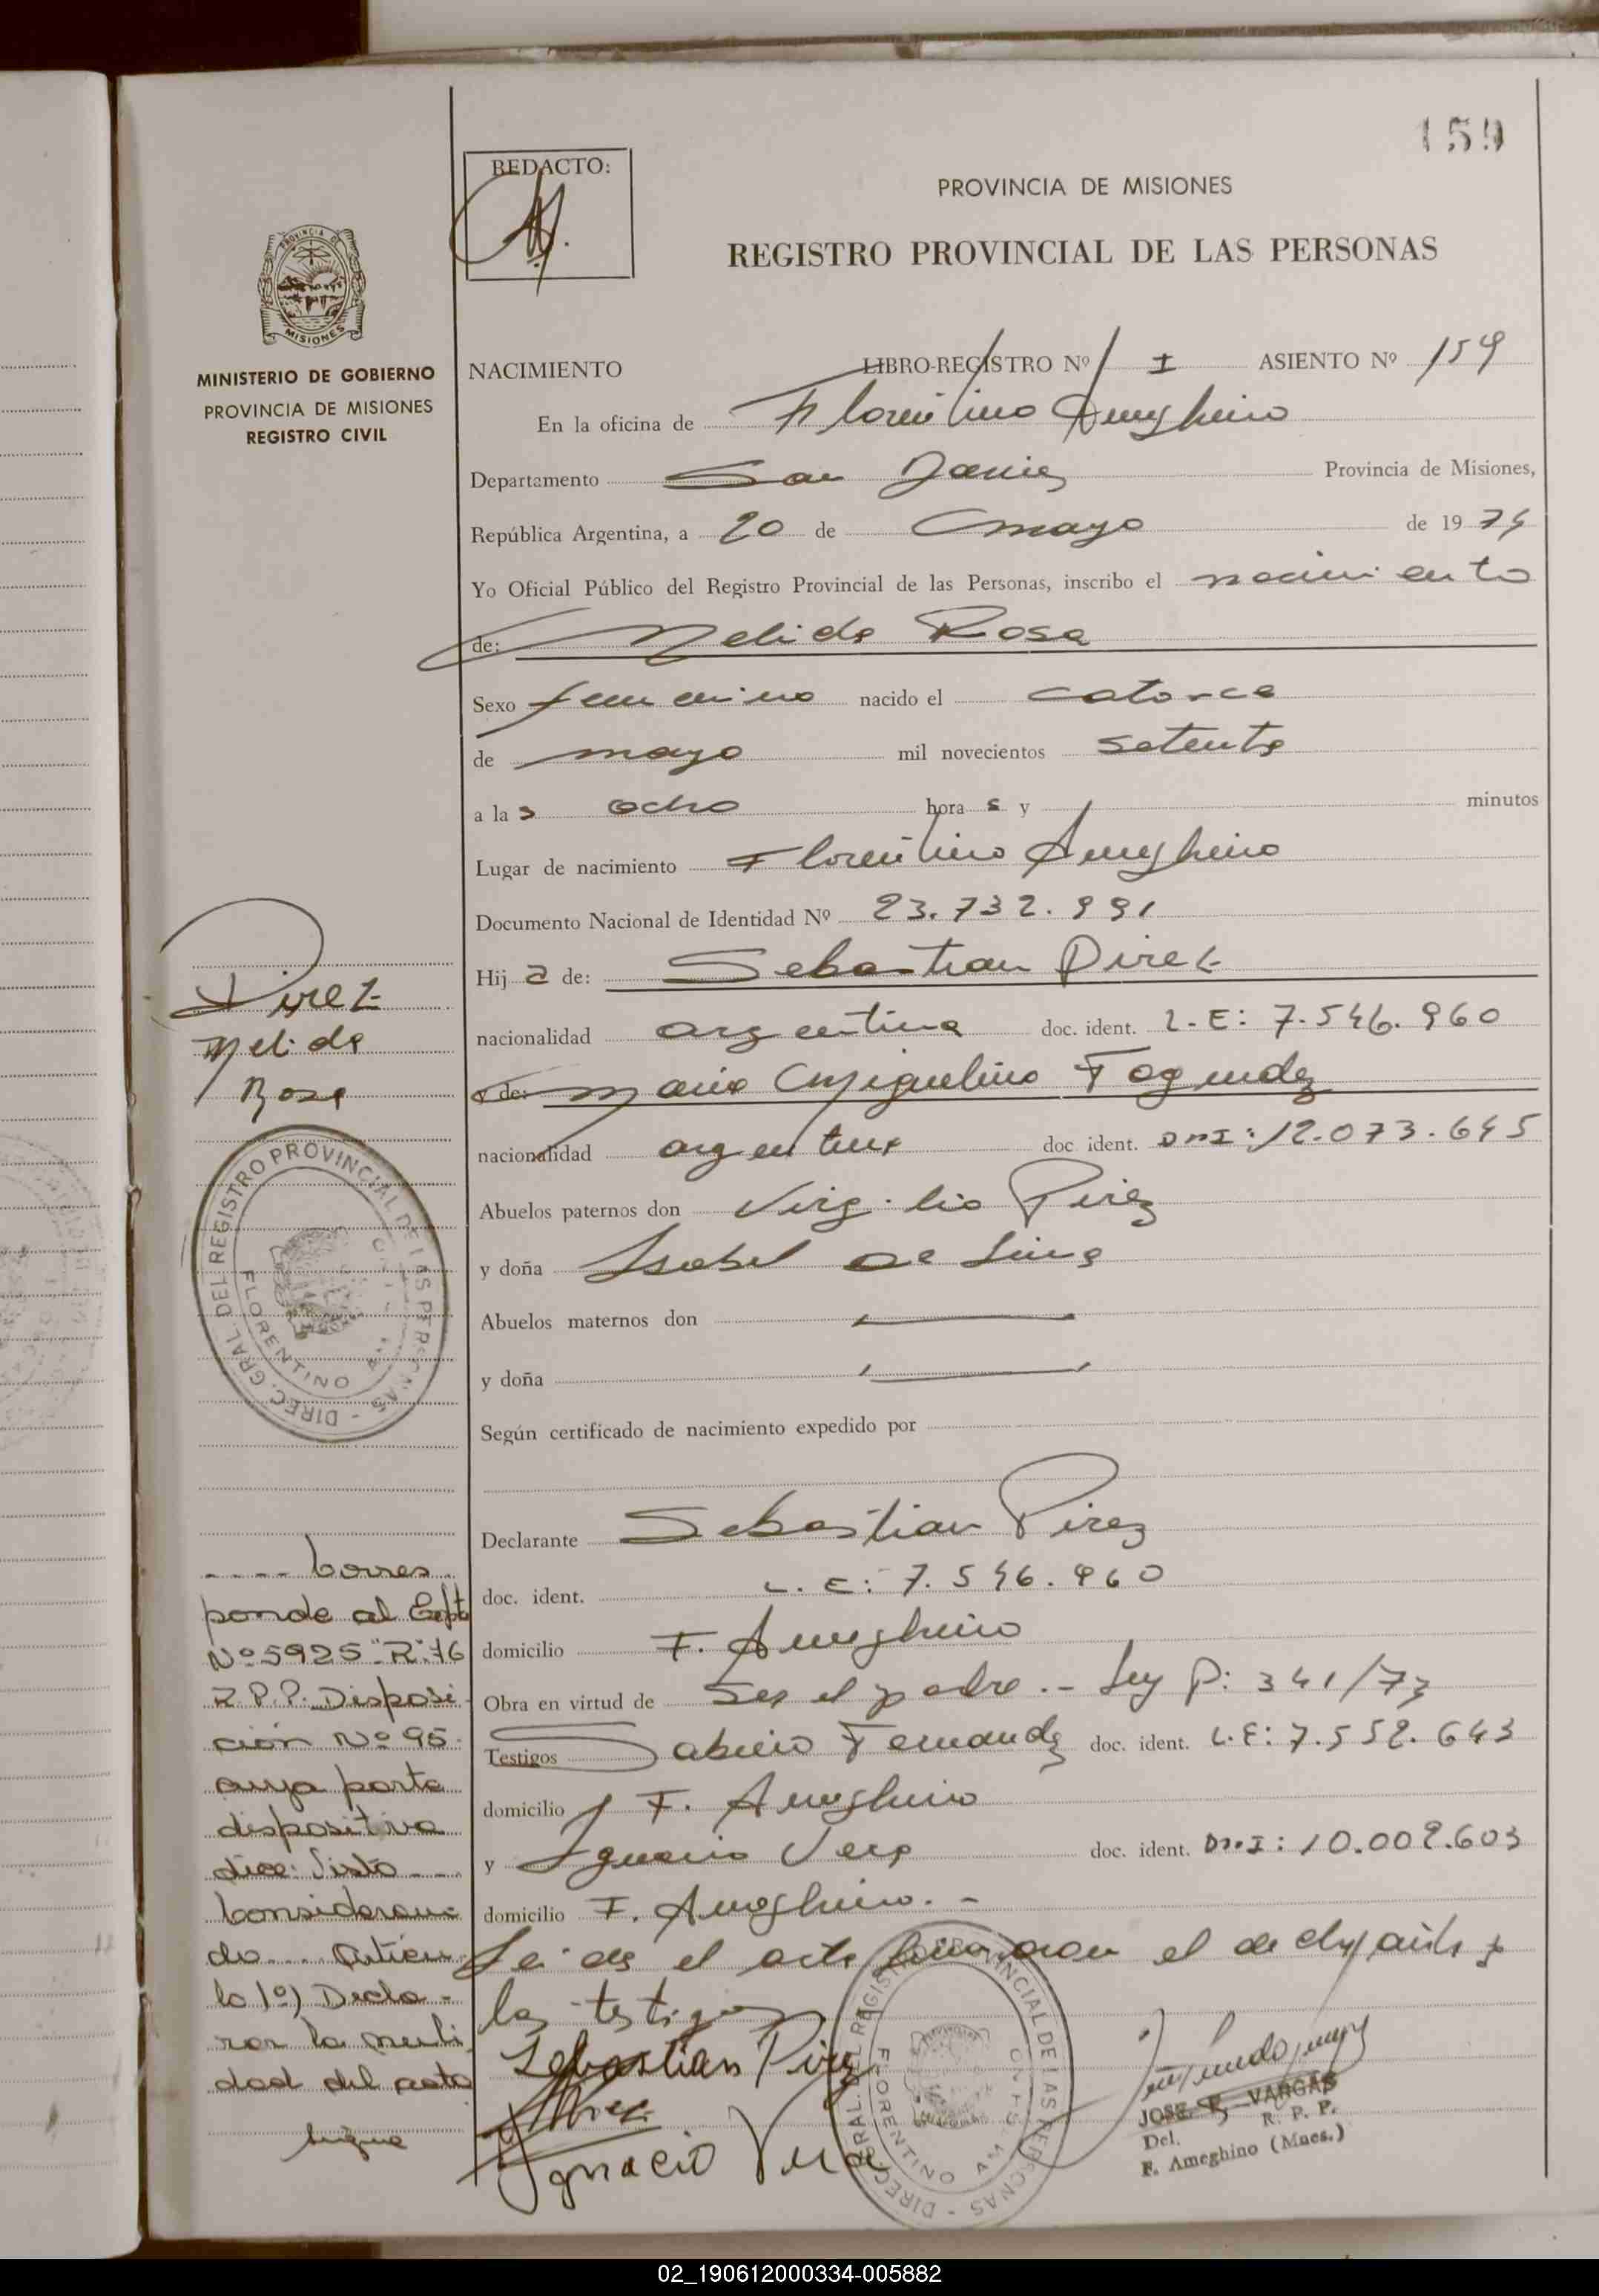 159
REDACTO:
PROVINCIA DE MISIONES
REGISTRO PROVINCIAL DE LAS PERSONAS
MISIONES
MINISTERIO DE GOBIERNO
PROVINCIA DE MISIONES
REGISTRO CIVIL
NACIMIENTO LIBRO-REGISTRO Nº I ASIENTO Nº 159
En la oficina de Florentino Ameghino
Departamento San Javier Provincia de Misiones,
República Argentina, a 20 de mayo de 1974
Yo Oficial Público del Registro Provincial de las Personas, inscribo el nacimiento
de: Nelida Rosa
Sexo femenino nacido el catorce
de mayo mil novecientos setenta
a las ocho horas y minutos
Lugar de nacimiento Florentino Ameghino
Documento Nacional de Identidad Nº 23.732.991
Hija de: Sebastian Pirez
nacionalidad argentina doc. ident. L.E: 7.546.960
y de: Maria Miguelina Fagundez
nacionalidad argentina doc ident. DNI: 12.073.645
Abuelos paternos don Virgilio Pirez
y doña Isabel de Lima
Abuelos maternos don
y doña
Según certificado de nacimiento expedido por
Declarante Sebastian Pirez
doc. ident. L.E: 7.546.960
domicilio F. Ameghino
Obra en virtud de ser el padre.- Ley P: 341/73
Testigos Sabino Fernandez doc. ident. L.E: 7.552.643
domicilio F. Ameghino
y Ignacio Vera doc. ident. DNI: 10.002.603
domicilio F. Ameghino.-
Leida el acta firman el declarante y
los testigos
Sebastian Pirez
Ignacio Vera
JOSE VARGAS
Del. R. P. P.
F. Ameghino (Mnes.)
Pirez
Nelida
Rosa
DIREC. GRAL. DEL REGISTRO PROVINCIAL DE LAS PERSONAS
FLORENTINO
---- Corres
ponde al Expte
Nº 5925 "R" 76
R.P.P. Disposi-
ción Nº 95
cuya parte
dispositiva
dice: Visto ---
Consideran-
do.... Articu-
lo 1º) Decla-
rar la nuli
dad del acta
sigue
DIREC. GRAL. DEL REGISTRO PROVINCIAL DE LAS PERSONAS
FLORENTINO
02_190612000334-005882